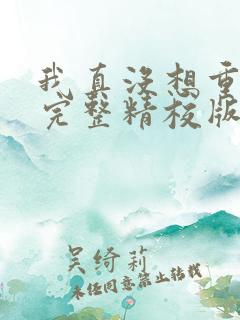 我真没想重
完整精校版
吴绮莉
未经同意禁止转载